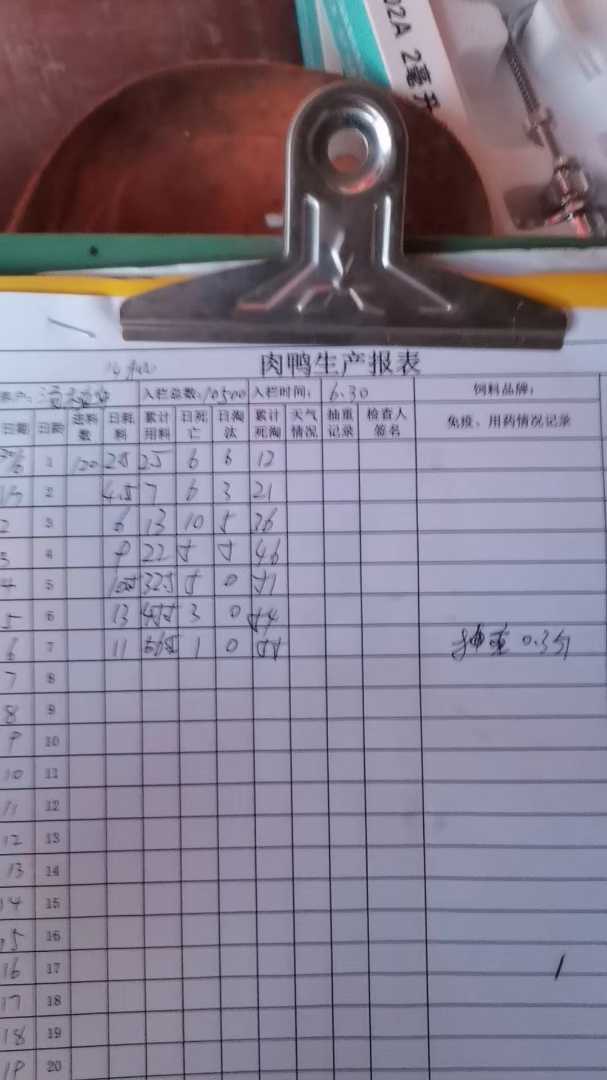 02A 2毫升
肉鸭生产报表
入栏总数:10500 入栏时间: 6.30 饲料品牌:
日期 日龄 进料数 日耗料 累计用料 日死亡 日淘汰 累计死淘 天气情况 抽重记录 检查人签名 免疫、用药情况记录
30/6 1 120 2.5 2.5 6 6 12
1/7 2 4.5 7 6 3 21
2 3 6 13 10 5 36
3 4 9 22 5 5 46
4 5 10.5 32.5 5 0 51
5 6 13 45.5 3 0 54
6 7 11 56.5 1 0 55 抽重 0.3斤
7 8
8 9
9 10
10 11
11 12
12 13
13 14
14 15
15 16
16 17
17 18
18 19
19 20